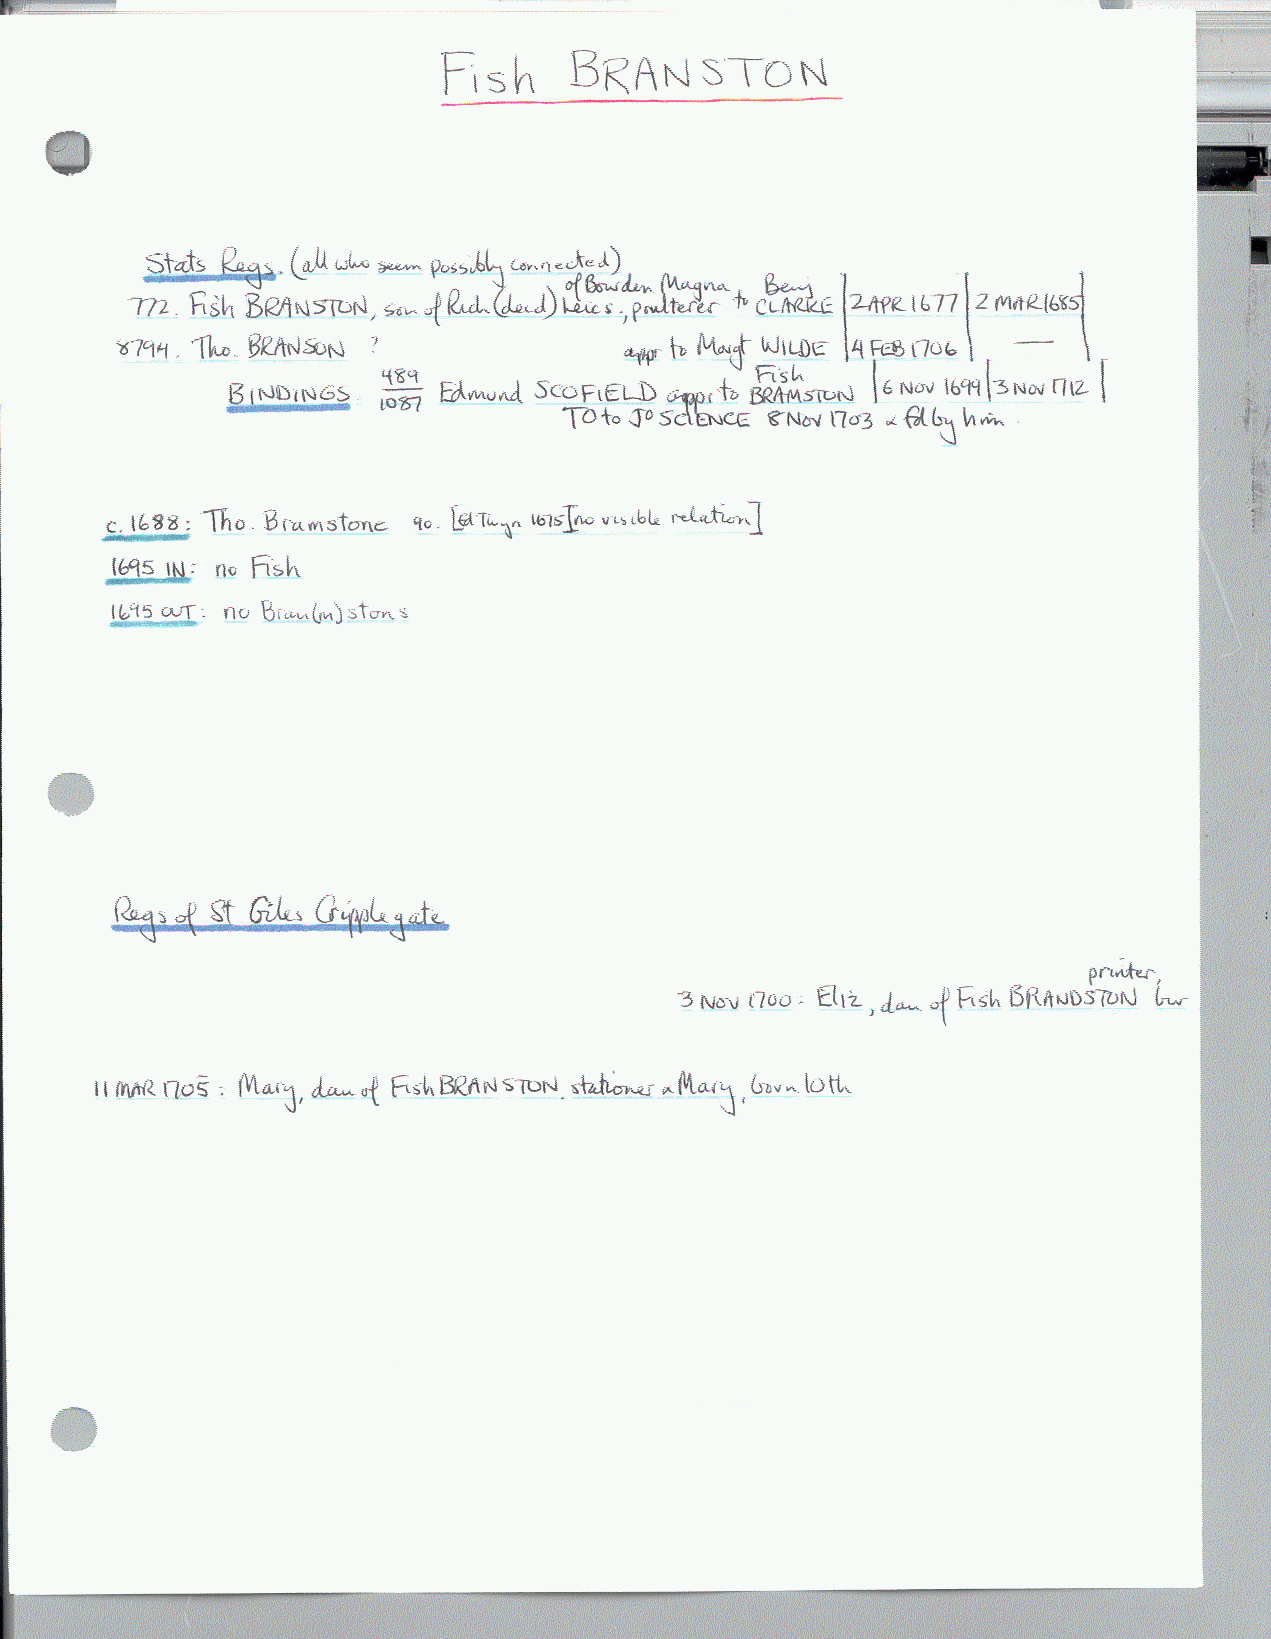 Fish BRANSTON
Stats Regs. (all who seem possibly connected)
of Bowden Magna, Benj
772. Fish BRANSTON, son of Rich. (decd) Leics., poulterer to CLARKE | 2 APR 1677 | 2 MAR 1685 |
8794. Tho. BRANSON ? appr to Margt WILDE | 4 FEB 1706 | — |
Fish
BINDINGS 489/1087 Edmund SCOFIELD appr to BRAMSTON | 6 NOV 1699 | 3 NOV 1712 |
TO to Jo SCIENCE 8 NOV 1703 & fd by him.
c. 1688: Tho. Bramstone 90. [Ed Twyn 1675][no visible relation]
1695 IN: no Fish
1695 OUT: no Bran(m)stons
Regs of St Giles Cripplegate
printer,
3 NOV 1700: Eliz, dau of Fish BRANDSTON bur
11 MAR 1705: Mary, dau of Fish BRANSTON, stationer & Mary, born 10th